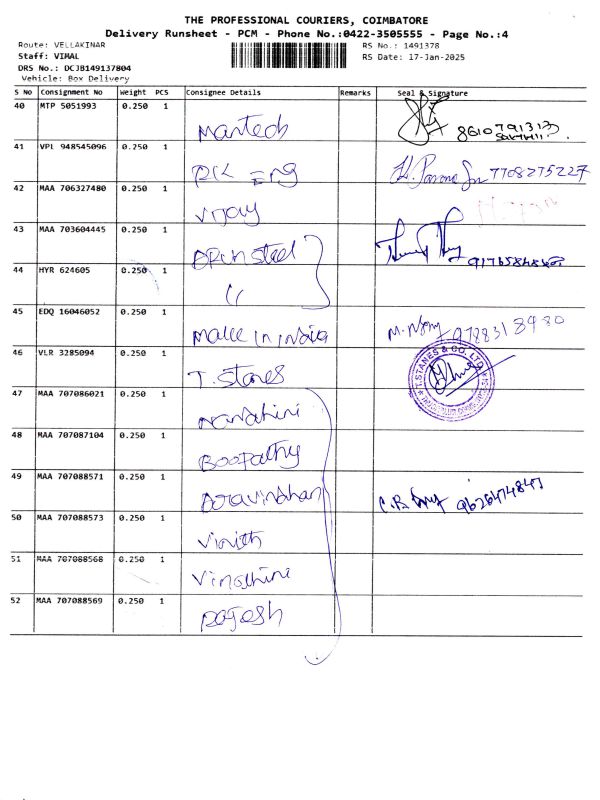 THE PROFESSIONAL COURIERS, COIMBATORE
Delivery Runsheet - PCM - Phone No.:0422-3505555 - Page No.:4
Route: VELLAKINAR
RS No.: 1491378
Staff: VIMAL
RS Date: 17-Jan-2025
DRS No.: DCJB149137804
Vehicle: Box Delivery
S No Consignment No Weight PCS Consignee Details Remarks Seal & Signature
40 MTP 5051993 0.250 1 Mantech 8610791313
41 VPL 948545096 0.250 1 7708275227
42 MAA 706327480 0.250 1 Vijay
43 MAA 703604445 0.250 1 steel
44 HYR 624605 0.250 1 "
45 EDQ 16046052 0.250 1 Make in india 9788318980
46 VLR 3285094 0.250 1 T. Stanes T.STANES & CO. LTD
47 MAA 707086021 0.250 1 Nandhini
48 MAA 707087104 0.250 1 Boopathy
49 MAA 707088571 0.250 1 Aravindhan 9626474847
50 MAA 707088573 0.250 1 Vinith
51 MAA 707088568 0.250 1 Vinothini
52 MAA 707088569 0.250 1 Ragesh